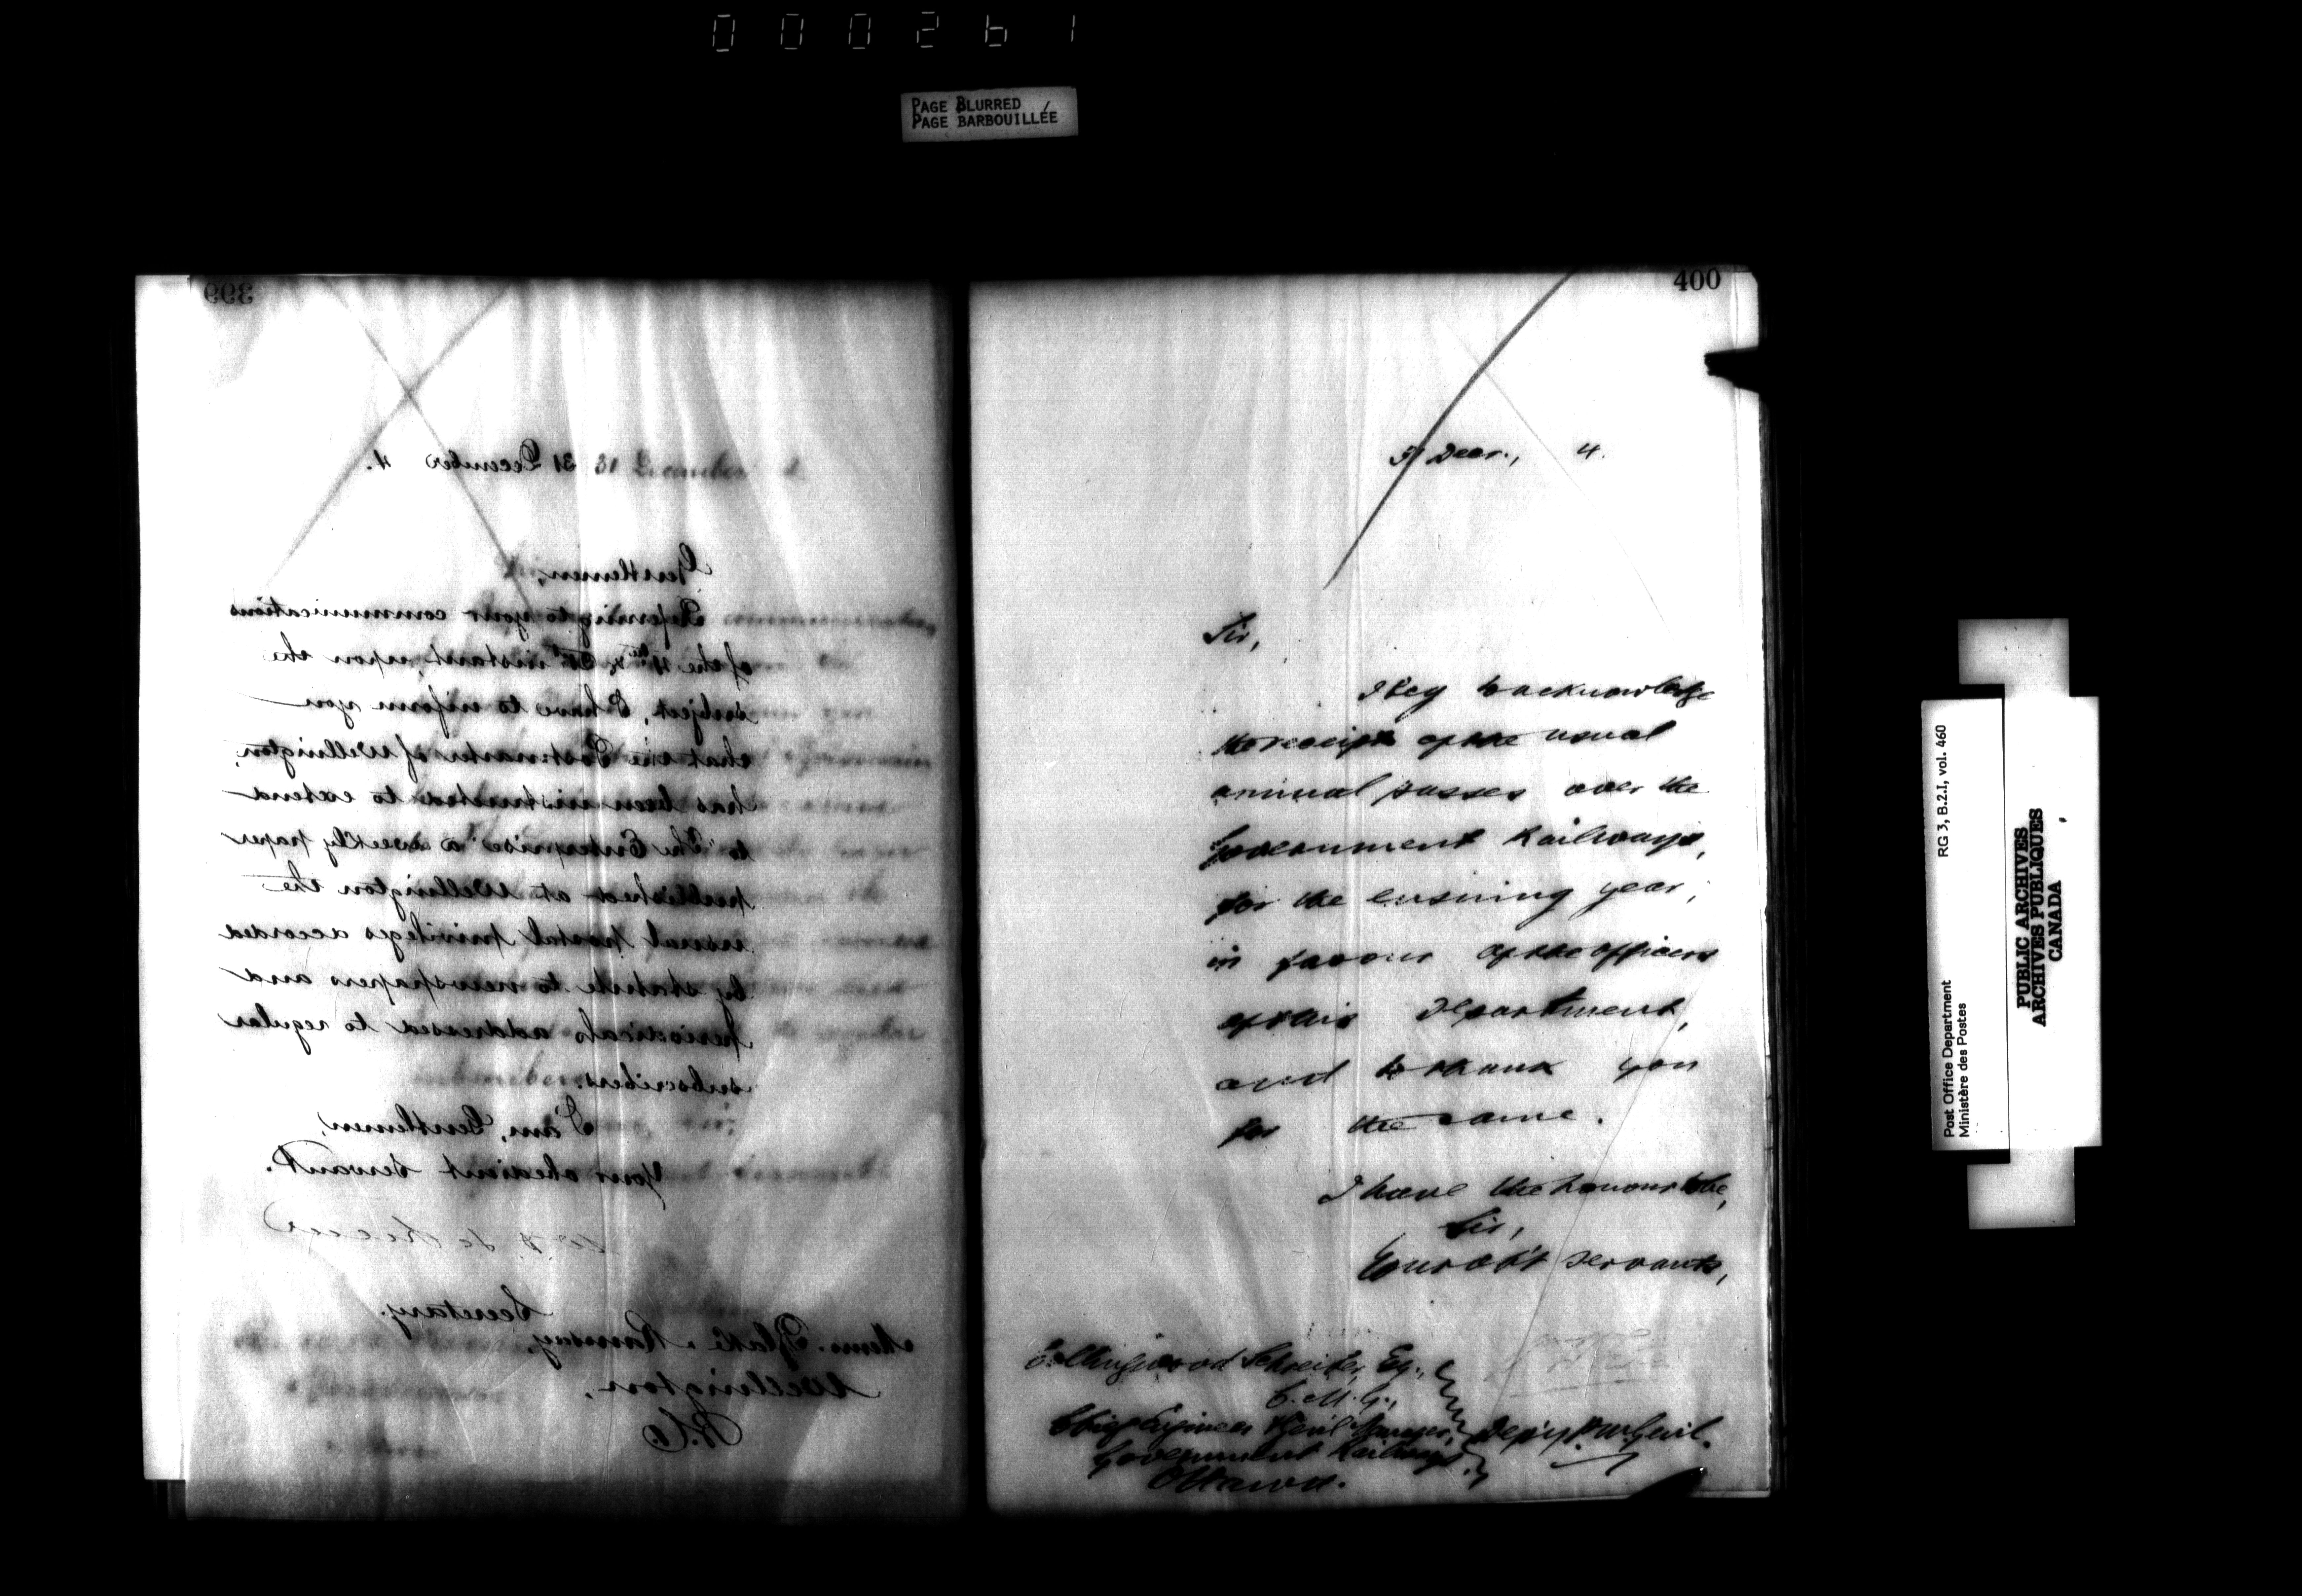 000261
PAGE BLURRED
PAGE BARBOUILLÉE
399
31 December 4.
Gentlemen,
Referring to your communications
of the 4th & instant, upon the
subject, I have to inform you
that the Postmaster of Wellington,
has been instructed to extend
to "The Enterprise" a weekly paper
published at Wellington the
usual postal privileges accorded
by statute to newspapers and
periodicals addressed to regular
subscribers.
I am, Gentlemen,
Your obedient Servant.
Secretary.
Messrs. & Ramsay,
Wellington,
B.C.
400
31 Decr., 4.
Sir,
I beg to acknowledge
the receipt of the usual
annual passes over the
Government Railways,
for the ensuing year,
in favour of the officers
of this Department,
and to thank you
for the same.
I have the honour to be,
Sir,
Your ob't servant,
Collingwood Schreiber, Esq.,
C.M.G.,
Chief Engineer & Genl Manager,
Government Railways.
Ottawa.
Dep'y P.M. Genl.
Post Office Department
Ministère des Postes
RG 3, B.2.I, vol. 460
PUBLIC ARCHIVES
ARCHIVES PUBLIQUES
CANADA